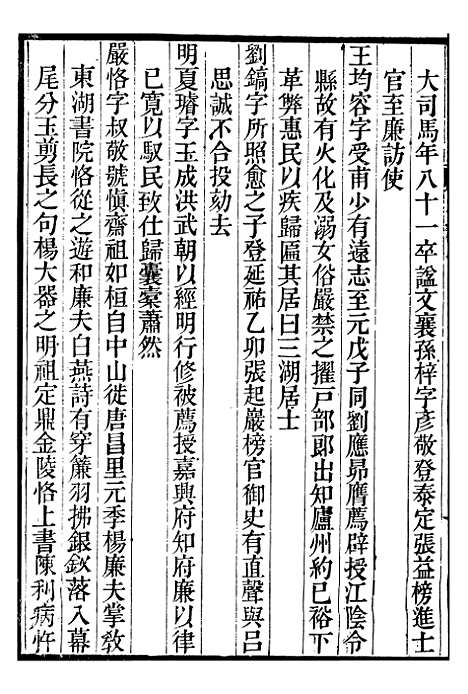 大司馬年八十一卒謚文襄孫梓字彥敬登泰定張益榜進士
官至廉訪使
王均容字受甫少有遠志至元戊子同劉應昴膺薦辟授江陰令
縣故有火化及溺女俗嚴禁之擢戸部郎出知廬州約已裕下
革弊惠民以疾歸匾其居曰三湖居士
劉鎬字所照愈之子登延祐乙卯張起巖榜官御史有直聲與呂
思誠不合投劾去
明夏璿字玉成洪武朝以經明行修被薦授嘉興府知府廉以律
已寬以馭民致仕歸囊橐蕭然
嚴恪字叔敬號愼齋祖如桓自中山徙唐昌里元季楊廉夫掌敎
東湖書院恪從之遊和廉夫白燕詩有穿簾羽拂銀釵落入幕
尾分玉剪長之句楊大器之明祖定鼎金陵恪上書陳利病忤